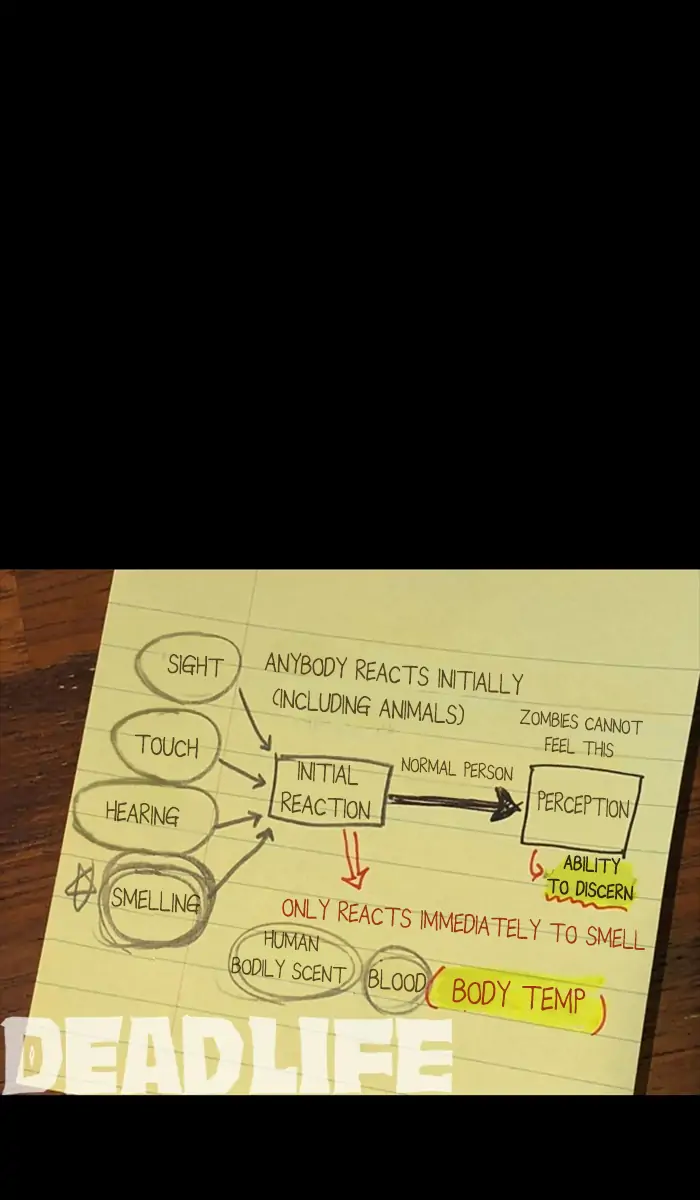 SIGHT
ANYBODY REACTS INITIALLY
(INCLUDING ANIMALS)
ZOMBIES CANNOT
FEEL THIS
TOUCH
INITIAL
REACTION
NORMAL PERSON
PERCEPTION
HEARING
ABILITY
TO DISCERN
SMELLING
ONLY REACTS IMMEDIATELY TO SMELL
HUMAN
BODILY SCENT
BLOOD
(BODY TEMP)
DEADLIFE